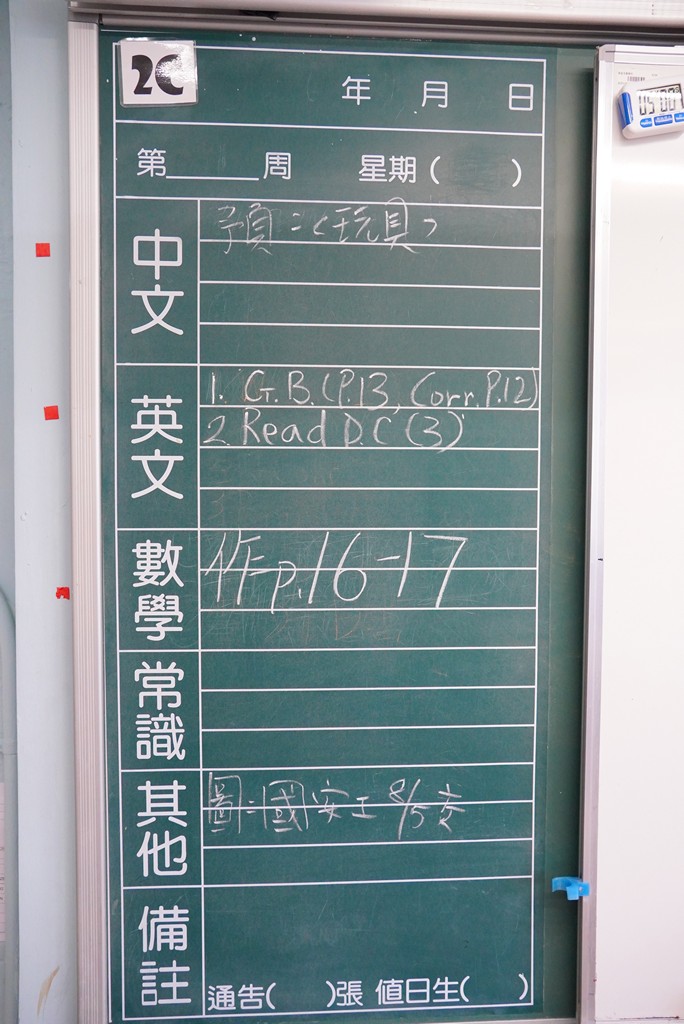 2C
年 月 日
第______周 星期( )
中文
預:<玩具>
英文
1. G.B. (P.13, Corr. P.12)
2. Read D.C (3)
數學
作p.16-17
常識
其他
圖:國安工 8/5交
備註
通告( )張 值日生( )